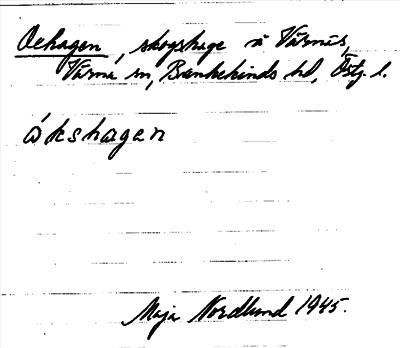 Oxhagen, skogshage å Värnäs,
Värna sn, Bankekinds hd, Östg. l.
ókshagen
Maja Nordlund 1945.